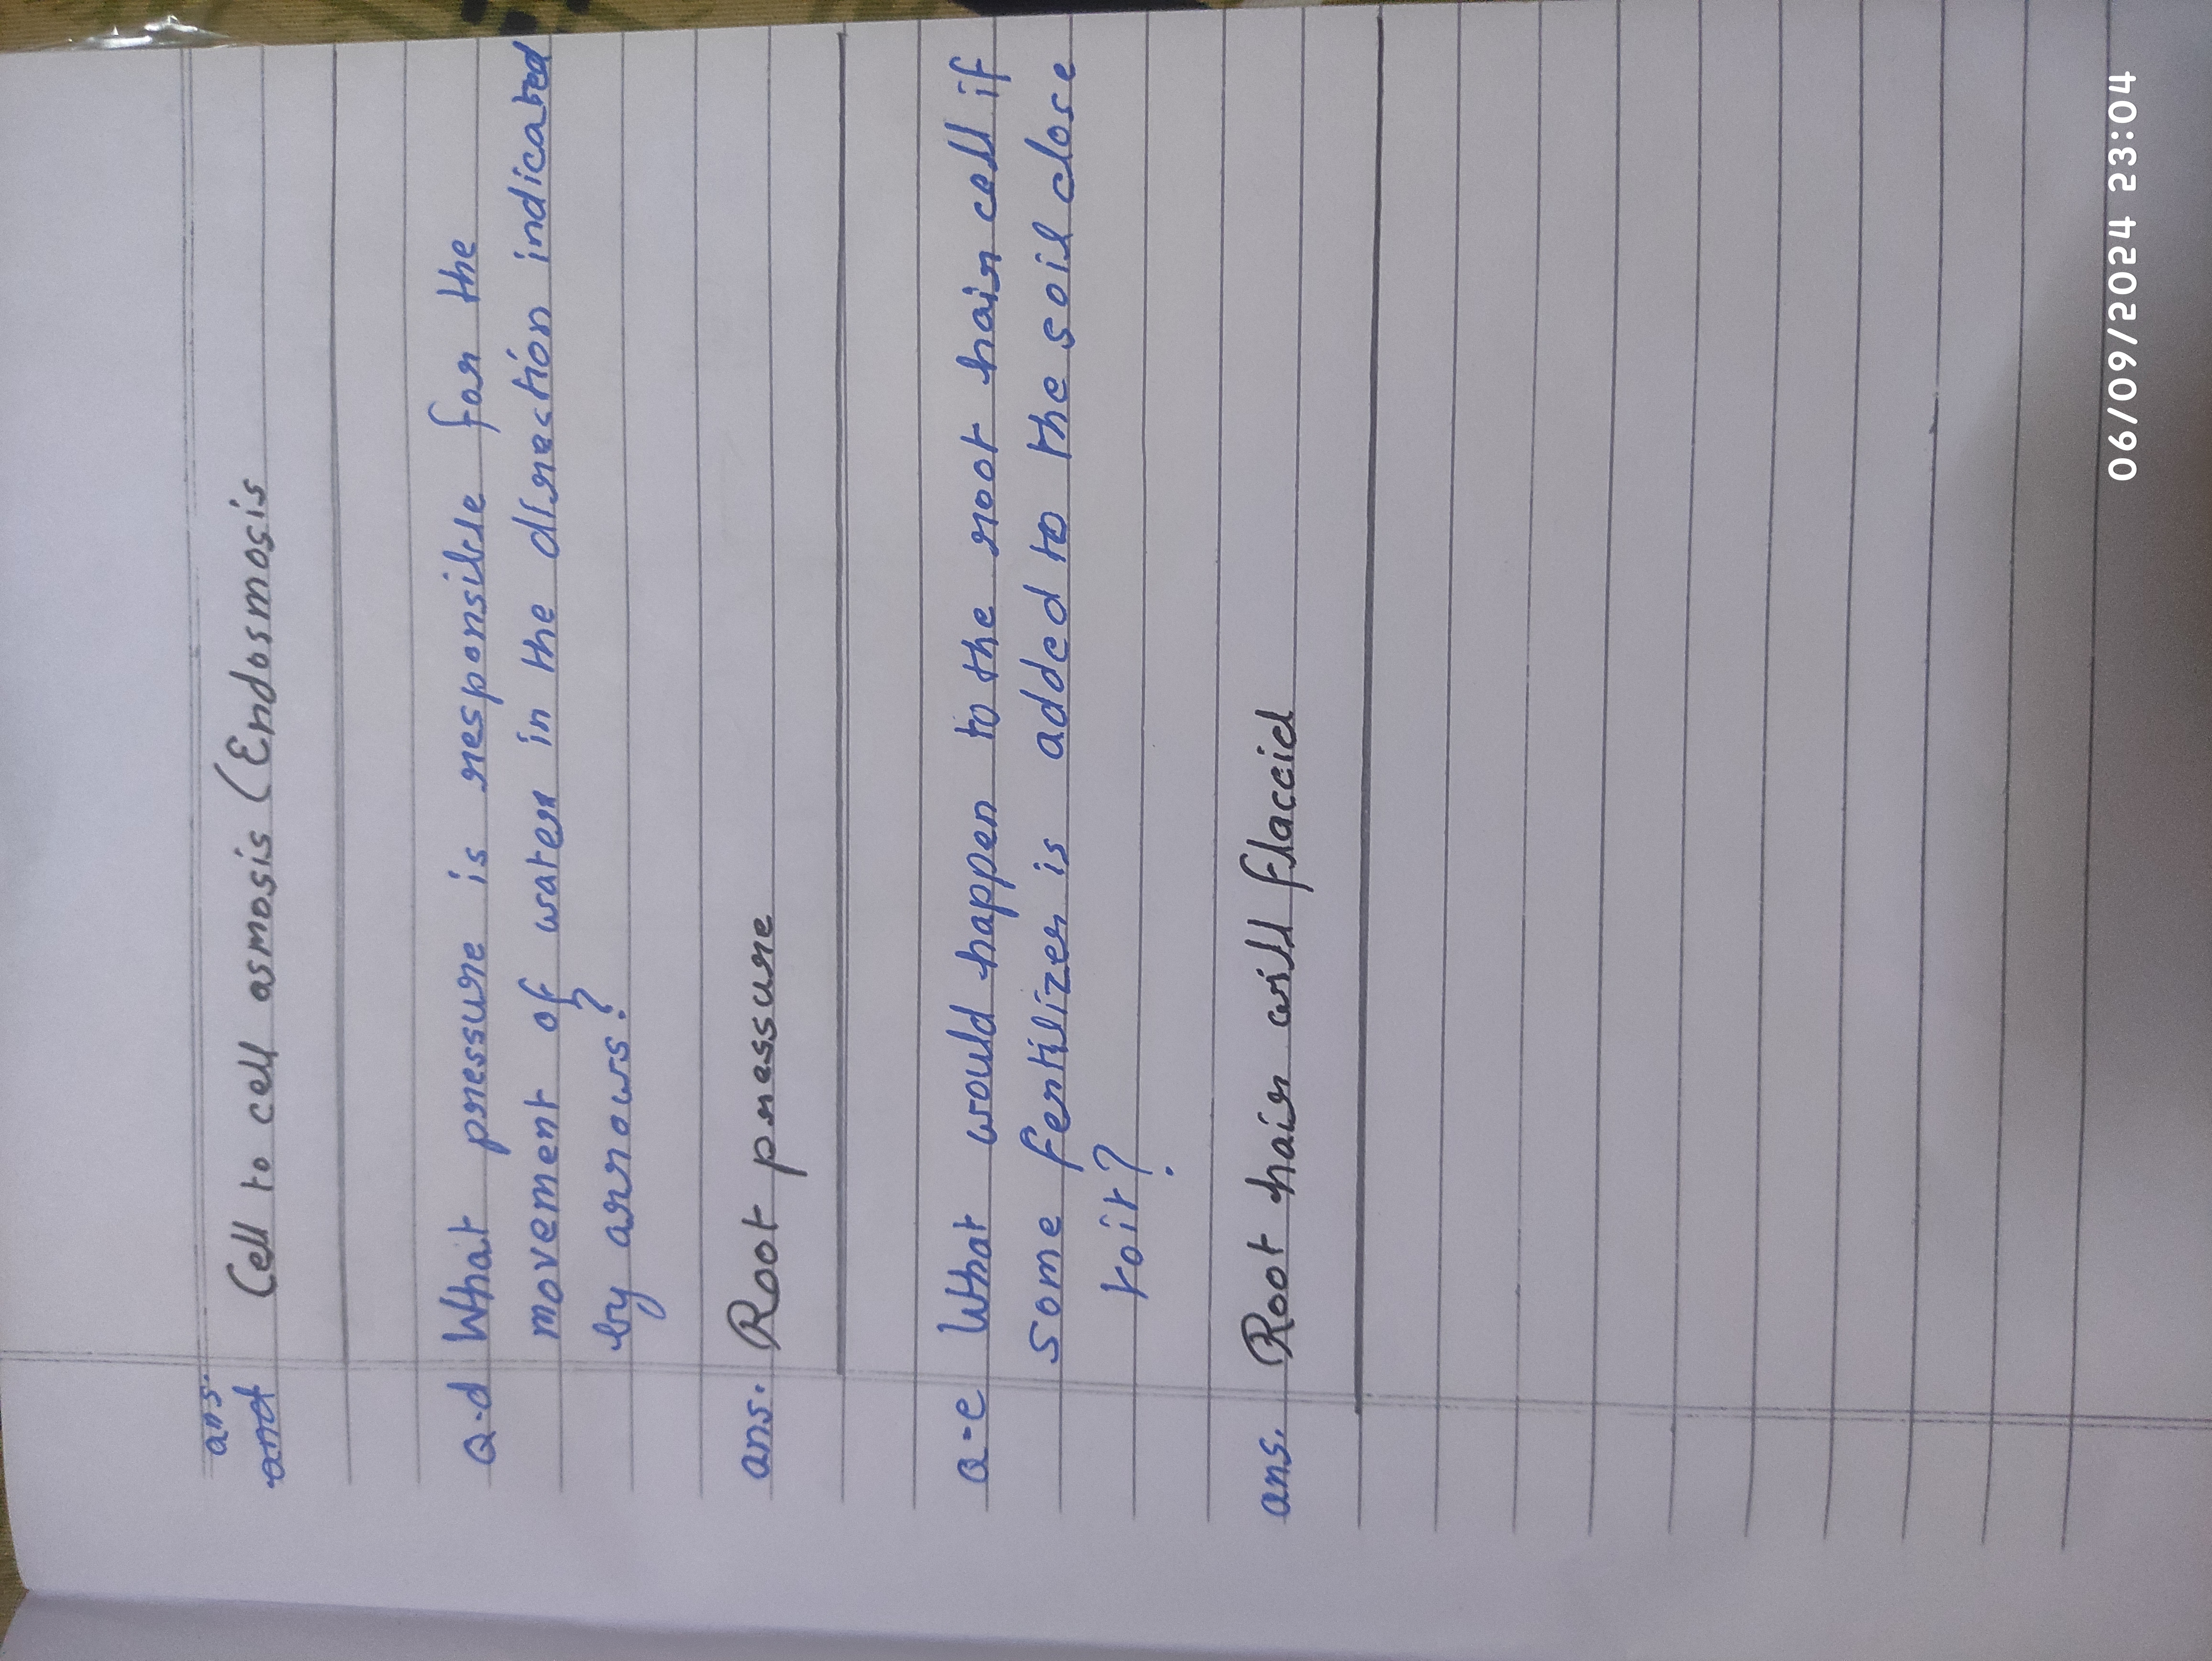 ans.
and Cell to cell osmosis (Endosmosis
Q.d What pressure is responsible for the
movement of water in the direction indicated
by arrows?
ans. Root pressure
Q-e What would happen to the root hair cell if
some fertilizer is added to the soil close
toit?
ans. Root hair will flaccid
06/09/2024 23:04